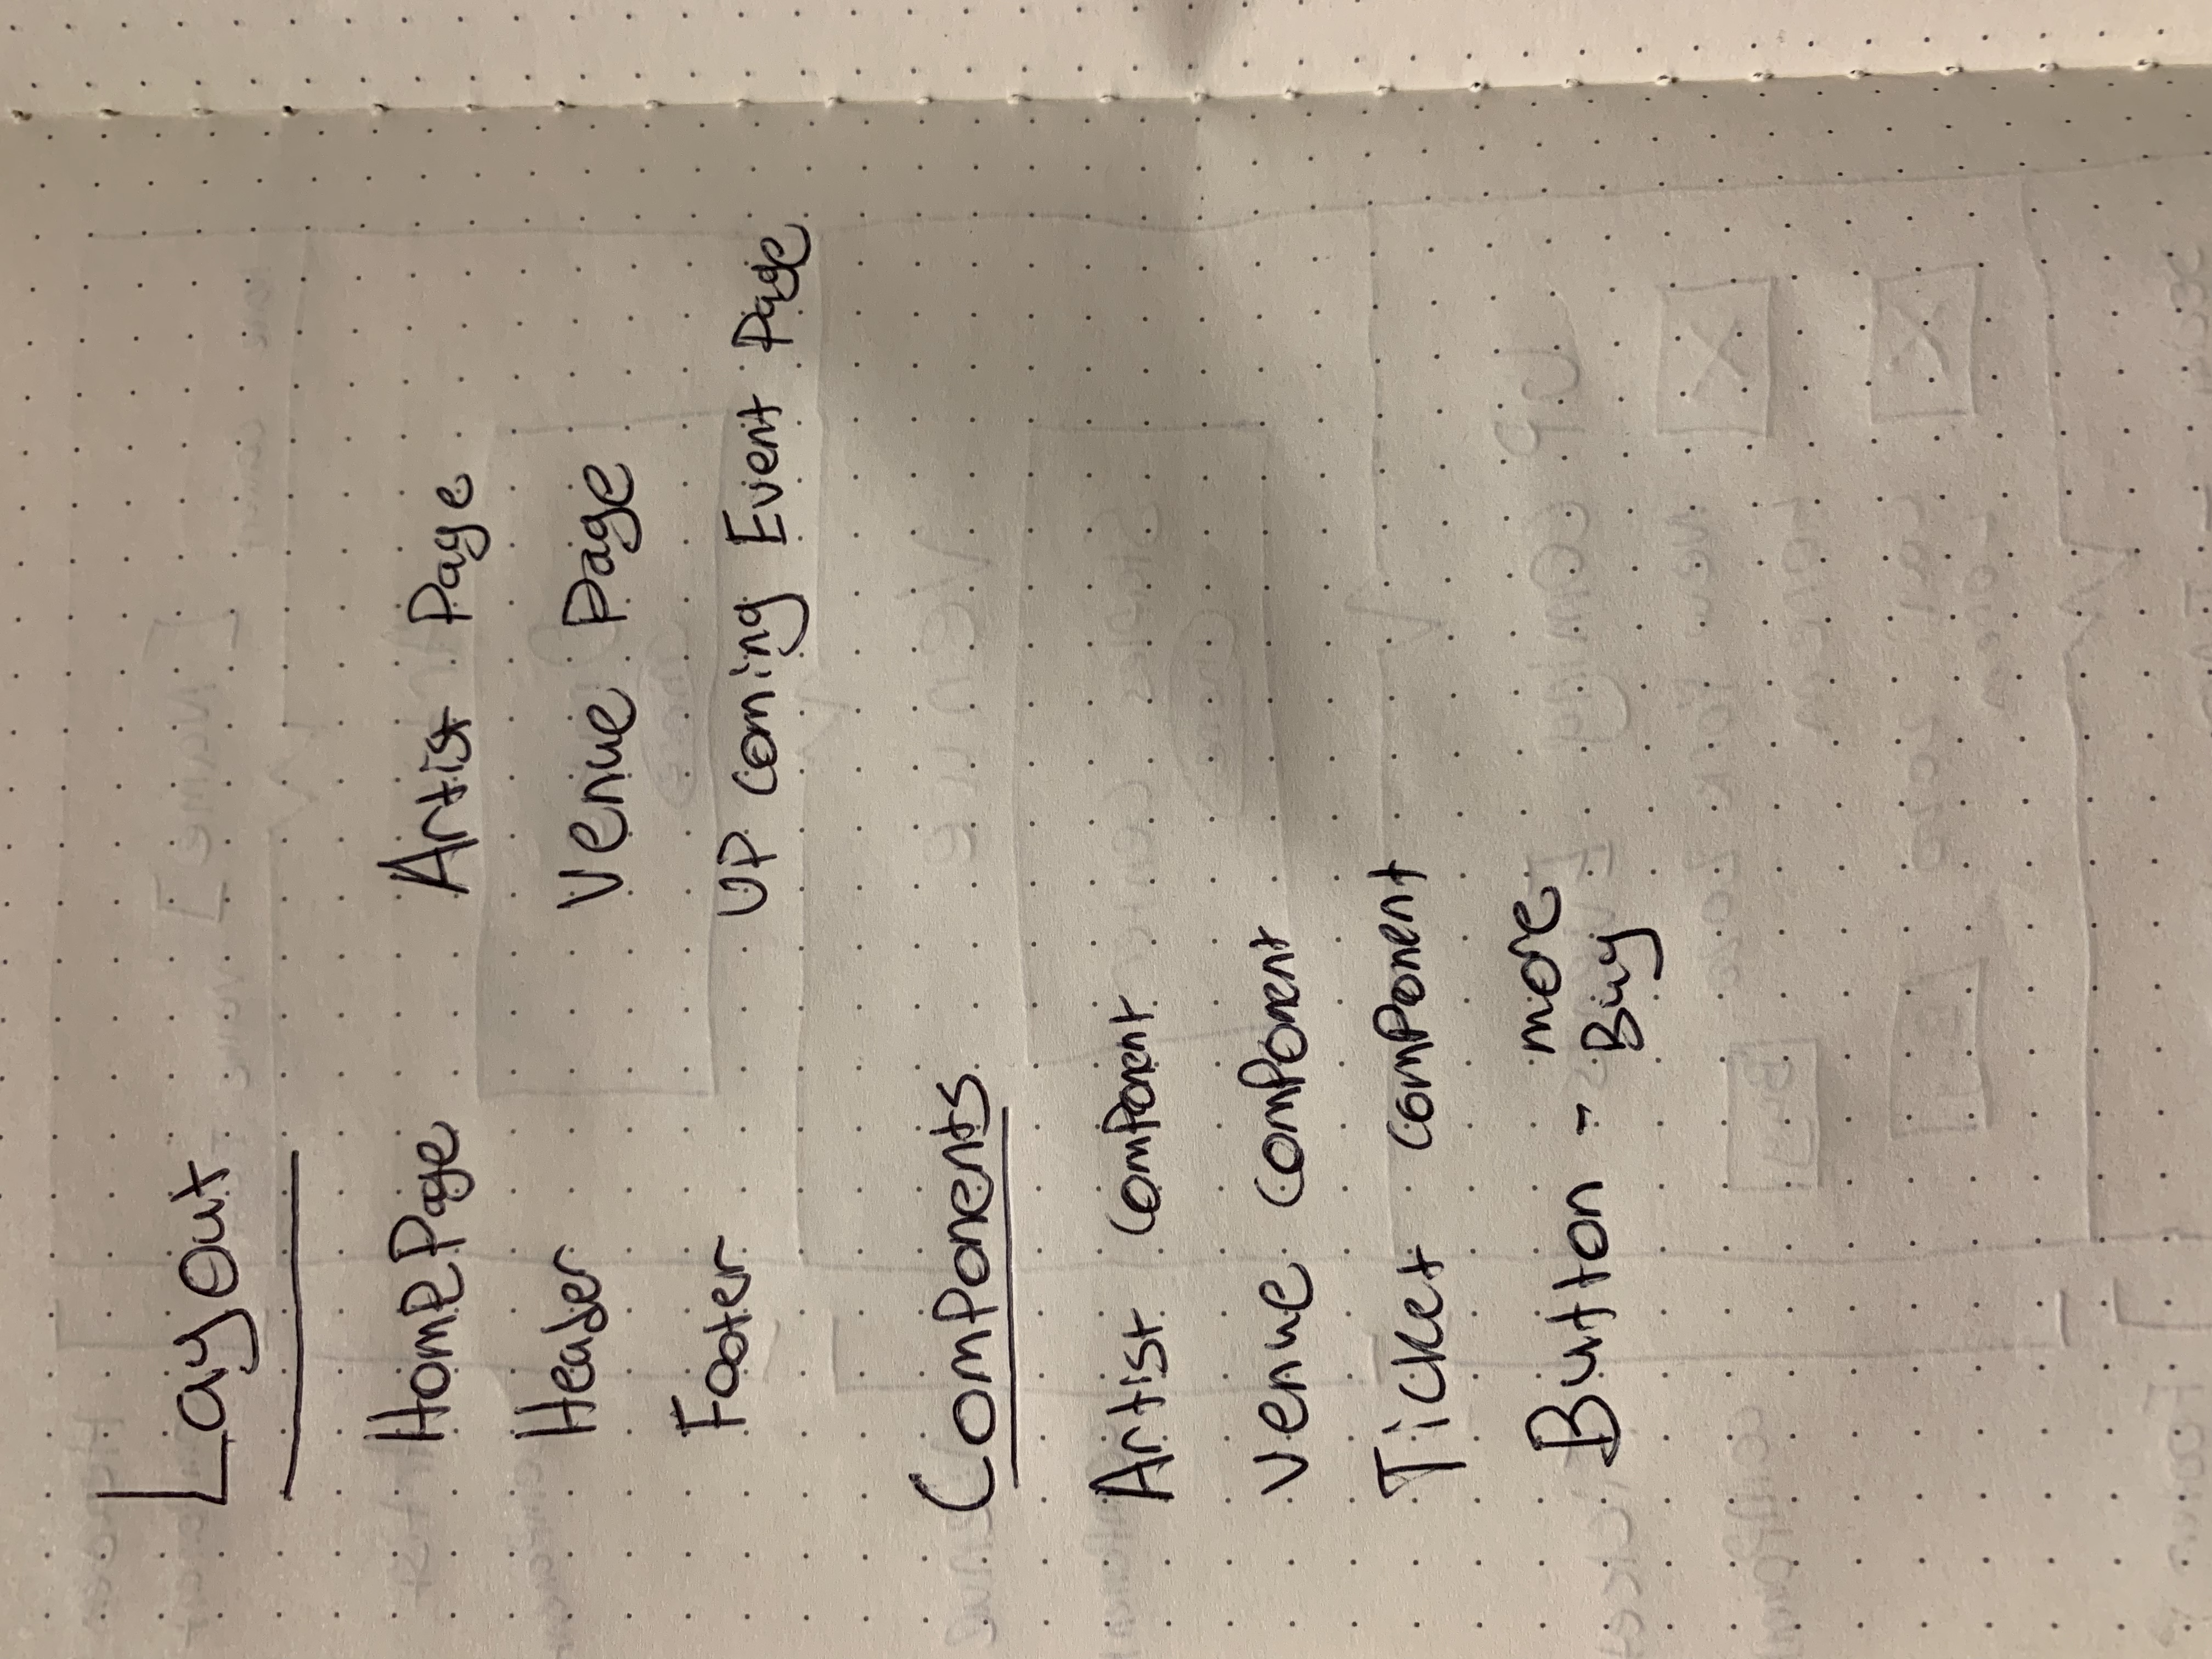 Layout
HomePage
Header
Footer
Artist Page
Venue Page
UP coming Event Page
Components
Artist component
Venue component
Ticket component
Button - more
Buy